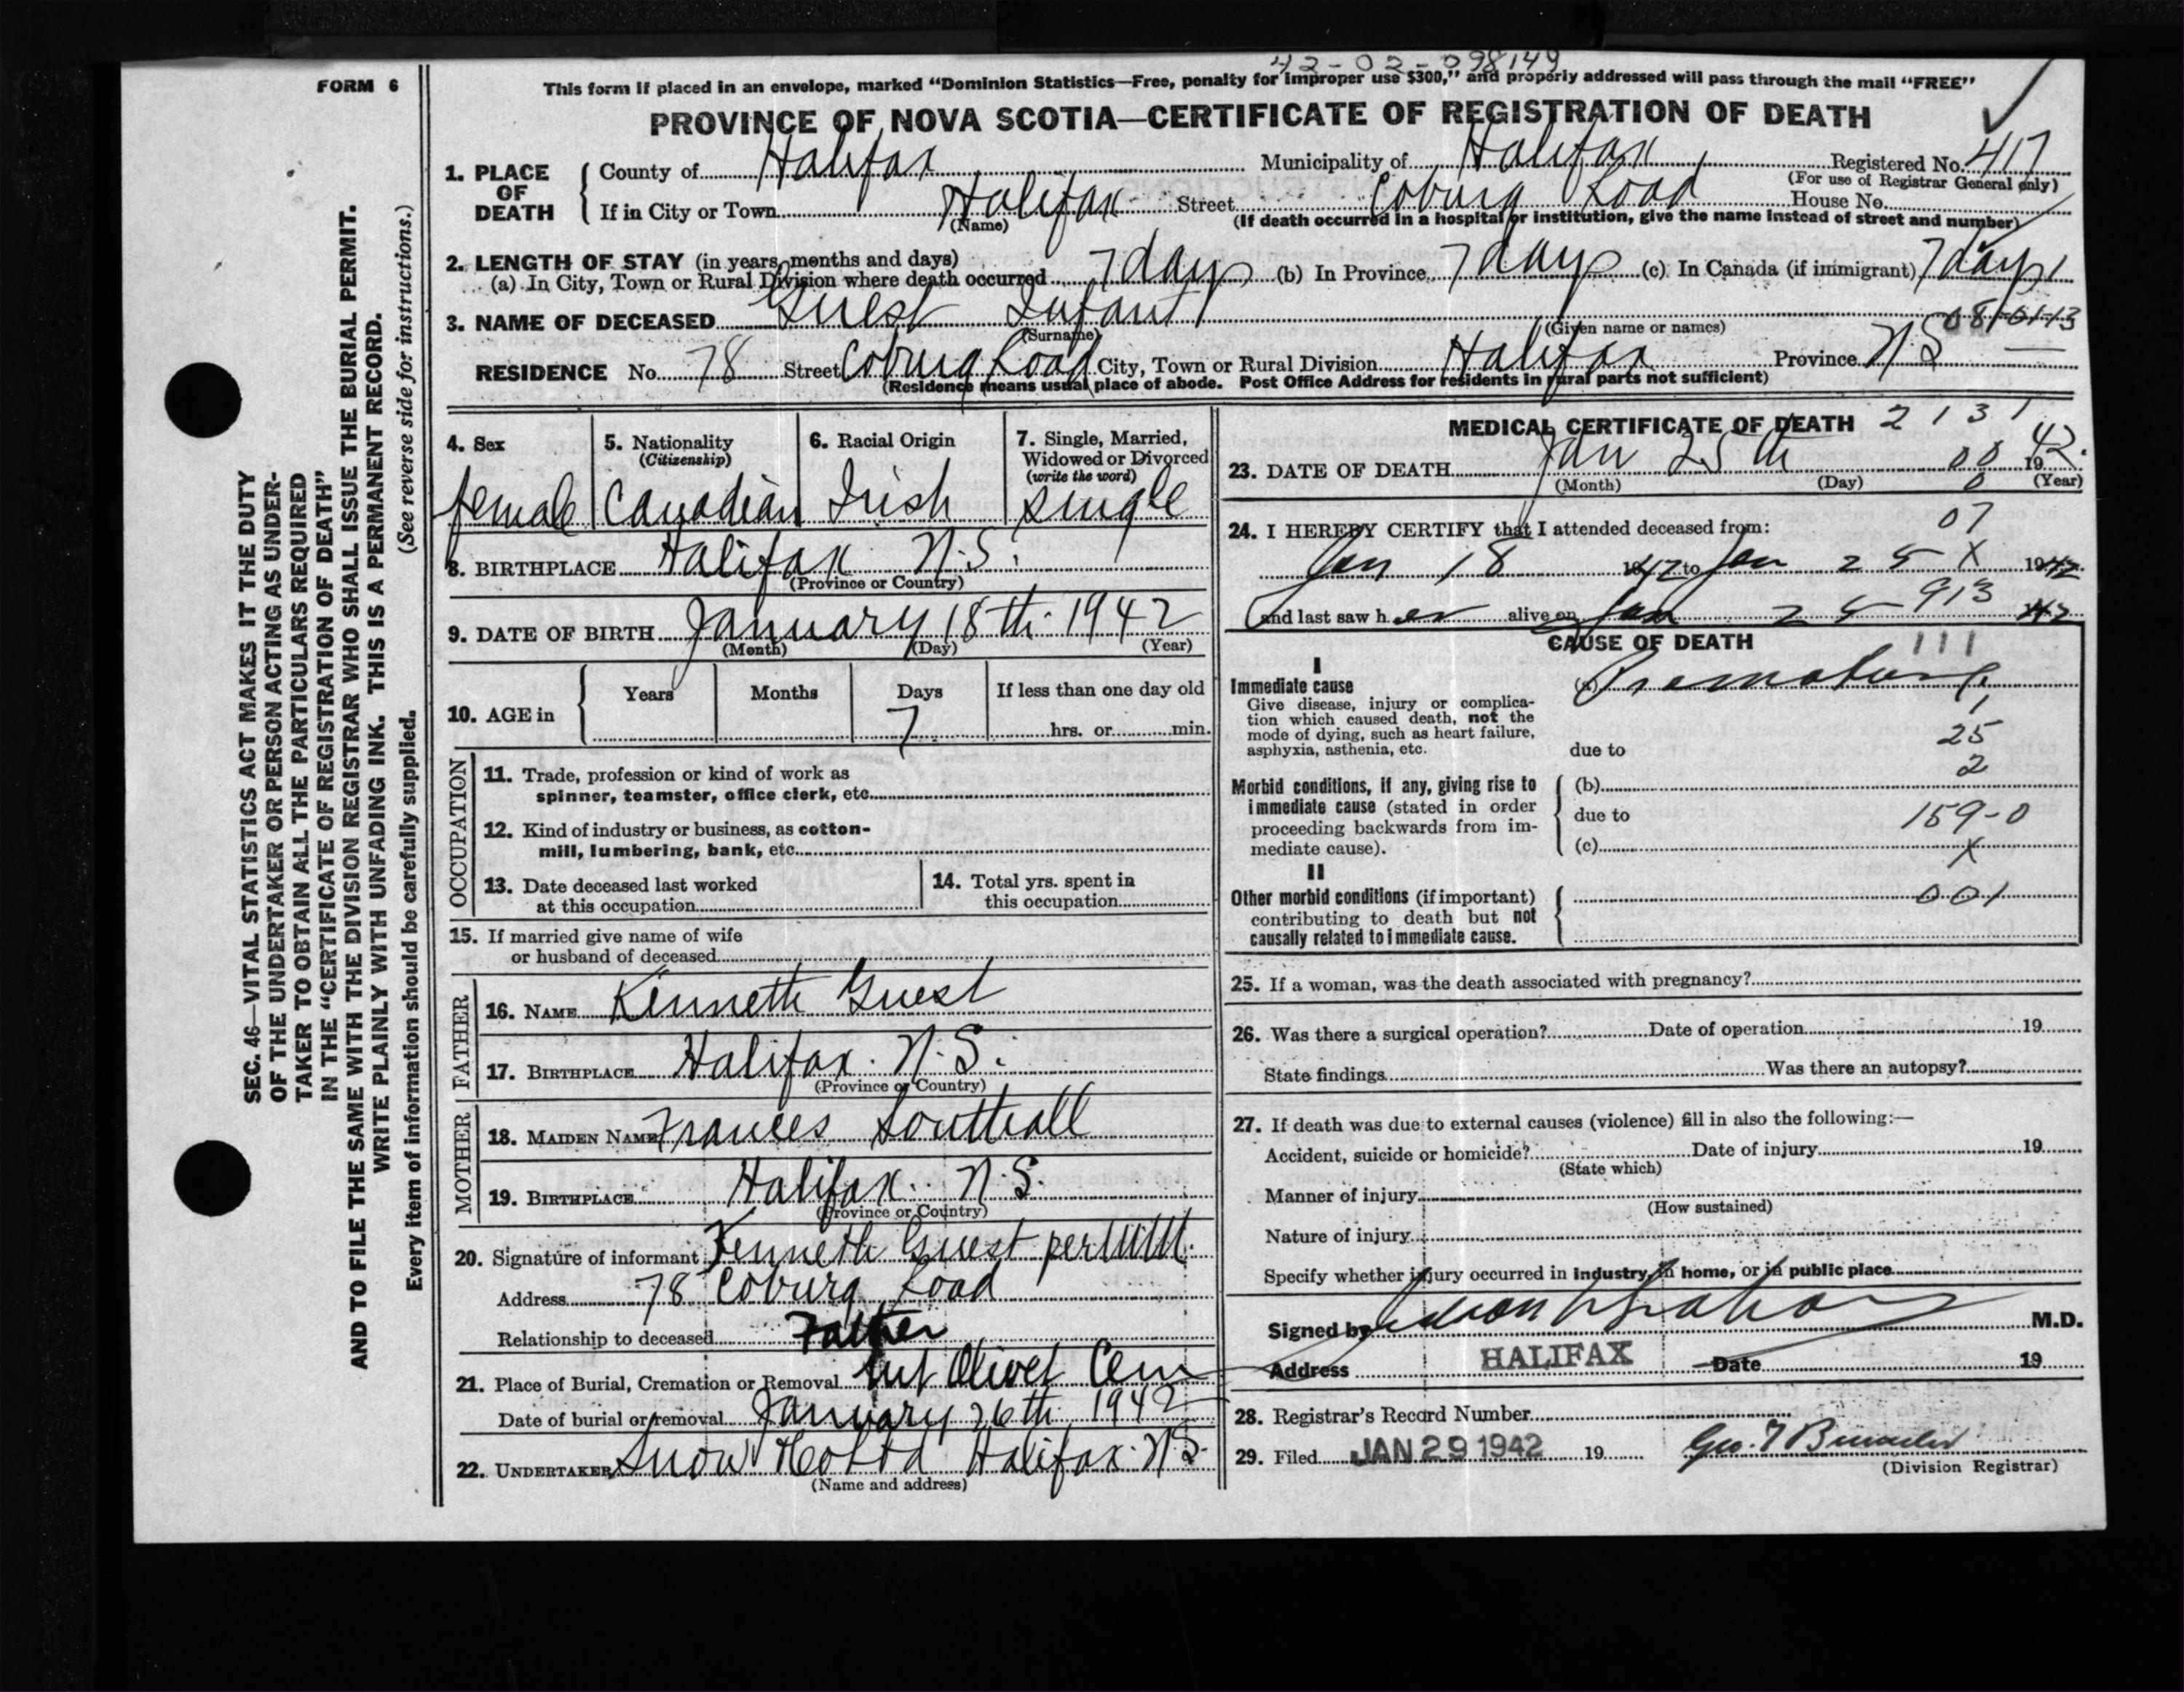 42-02-098149
FORM 6
This form if placed in an envelope, marked “Dominion Statistics—Free, penalty for improper use $300,” and properly addressed will pass through the mail “FREE”
PROVINCE OF NOVA SCOTIA—CERTIFICATE OF REGISTRATION OF DEATH
1. PLACE OF DEATH County of Halifax Municipality of Halifax Registered No. 417
(For use of Registrar General only)
If in City or Town Halifax Street Coburg Road House No.
(Name) (If death occurred in a hospital or institution, give the name instead of street and number)
2. LENGTH OF STAY (in years, months and days)
(a) In City, Town or Rural Division where death occurred 7 days (b) In Province 7 days (c) In Canada (if immigrant) 7 days
3. NAME OF DECEASED Guest Infant
(Surname) (Given name or names)
RESIDENCE No. 78 Street Coburg Road City, Town or Rural Division Halifax Province N S
(Residence means usual place of abode. Post Office Address for residents in rural parts not sufficient)
4. Sex
female
5. Nationality
(Citizenship)
Canadian
6. Racial Origin
Irish
7. Single, Married,
Widowed or Divorced
(write the word)
single
8. BIRTHPLACE Halifax N.S.
(Province or Country)
9. DATE OF BIRTH January 18th 1942
(Month) (Day) (Year)
10. AGE in Years Months Days If less than one day old
7 hrs. or min.
OCCUPATION
11. Trade, profession or kind of work as
spinner, teamster, office clerk, etc.
12. Kind of industry or business, as cotton-
mill, lumbering, bank, etc.
13. Date deceased last worked
at this occupation
14. Total yrs. spent in
this occupation
15. If married give name of wife
or husband of deceased
FATHER
16. NAME Kenneth Guest
17. BIRTHPLACE Halifax. N.S.
(Province or Country)
MOTHER
18. MAIDEN NAME Frances Southall
19. BIRTHPLACE Halifax. N.S.
(Province or Country)
20. Signature of informant Kenneth Guest per
Address 78 Coburg Road
Relationship to deceased Father
21. Place of Burial, Cremation or Removal Mt Olivet Cem
Date of burial or removal January 26th 1942
22. UNDERTAKER Snow Halifax. N.S.
(Name and address)
MEDICAL CERTIFICATE OF DEATH 2131
23. DATE OF DEATH Jan 25th 00 1942.
(Month) (Day) 0 (Year)
24. I HEREBY CERTIFY that I attended deceased from: 07
Jan 18 1942 to Jan 25 X 1942
and last saw her alive on Jan 25 913 42
CAUSE OF DEATH 111
I
Immediate cause (a)
Give disease, injury or complica-
tion which caused death, not the
mode of dying, such as heart failure,
asphyxia, asthenia, etc. due to
1
25
2
Morbid conditions, if any, giving rise to (b)
immediate cause (stated in order
proceeding backwards from im- due to 159-0
mediate cause). (c) X
II
Other morbid conditions (if important) 001
contributing to death but not
causally related to immediate cause.
25. If a woman, was the death associated with pregnancy?
26. Was there a surgical operation? Date of operation 19
State findings Was there an autopsy?
27. If death was due to external causes (violence) fill in also the following:—
Accident, suicide or homicide? Date of injury 19
(State which)
Manner of injury
(How sustained)
Nature of injury
Specify whether injury occurred in industry, in home, or in public place
Signed by M.D.
Address HALIFAX Date 19
28. Registrar's Record Number
29. Filed JAN 29 1942 19 Geo.
(Division Registrar)
SEC. 46—VITAL STATISTICS ACT MAKES IT THE DUTY
OF THE UNDERTAKER OR PERSON ACTING AS UNDER-
TAKER TO OBTAIN ALL THE PARTICULARS REQUIRED
IN THE “CERTIFICATE OF REGISTRATION OF DEATH”
AND TO FILE THE SAME WITH THE DIVISION REGISTRAR WHO SHALL ISSUE THE BURIAL PERMIT.
WRITE PLAINLY WITH UNFADING INK. THIS IS A PERMANENT RECORD.
(See reverse side for instructions.)
Every item of information should be carefully supplied.